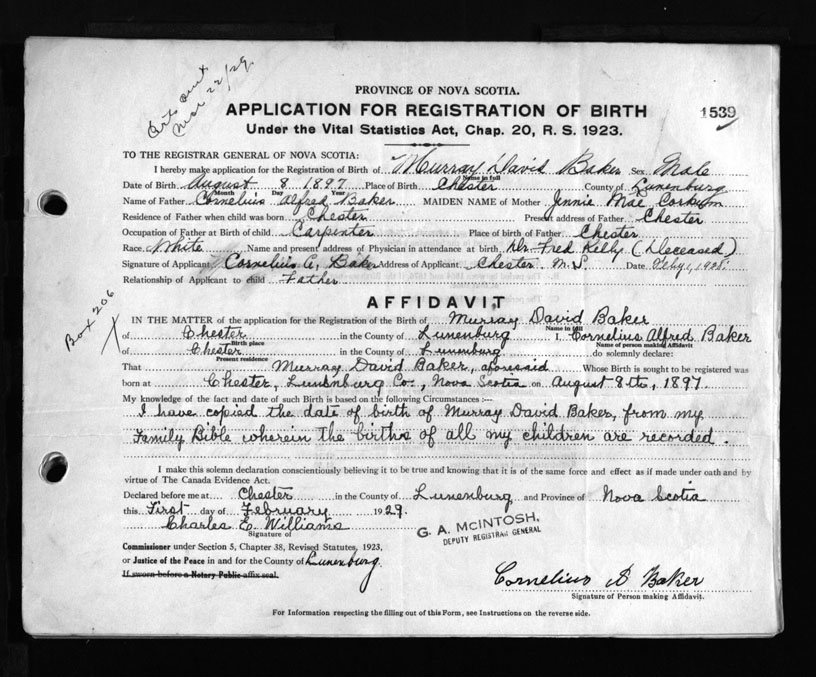 PROVINCE OF NOVA SCOTIA.
APPLICATION FOR REGISTRATION OF BIRTH
1539
Under the Vital Statistics Act, Chap. 20, R. S. 1923.
Mar 22/29.
TO THE REGISTRAR GENERAL OF NOVA SCOTIA:
I hereby make application for the Registration of Birth of Murray David Baker Sex Male
Name in full
Date of Birth August 8 1897 Place of Birth Chester County of Lunenburg
Month Day Year
Name of Father Cornelius Alfred Baker MAIDEN NAME of Mother Jennie Mae Corkum
Residence of Father when child was born Chester Present address of Father Chester
Occupation of Father at Birth of child Carpenter Place of birth of Father Chester
Race White Name and present address of Physician in attendance at birth Dr. Fred Kelly (Deceased)
Signature of Applicant Cornelius A. Baker Address of Applicant Chester N.S. Date
Relationship of Applicant to child Father
Box 206
AFFIDAVIT
IN THE MATTER of the application for the Registration of the Birth of Murray David Baker
Name in full
of Chester in the County of Lunenburg I, Cornelius Alfred Baker
Birth place Name of person making Affidavit
of Chester in the County of Lunenburg do solemnly declare:
Present residence
That Murray David Baker, aforesaid Whose Birth is sought to be registered was
born at Chester, Lunenburg Co., Nova Scotia on August 8th, 1897.
My knowledge of the fact and date of such Birth is based on the following Circumstances :—
I have copied the date of birth of Murray David Baker, from my
Family Bible wherein the births of all my children are recorded.
I make this solemn declaration conscientiously believing it to be true and knowing that it is of the same force and effect as if made under oath and by
virtue of The Canada Evidence Act.
Declared before me at Chester in the County of Lunenburg and Province of Nova Scotia
this First day of February 1929.
Charles E. Williams
Signature of
G. A. McINTOSH,
DEPUTY REGISTRAR GENERAL
Commissioner under Section 5, Chapter 38, Revised Statutes, 1923,
or Justice of the Peace in and for the County of Lunenburg.
If sworn before a Notary Public affix seal.
Cornelius A Baker
Signature of Person making Affidavit.
For Information respecting the filling out of this Form, see Instructions on the reverse side.